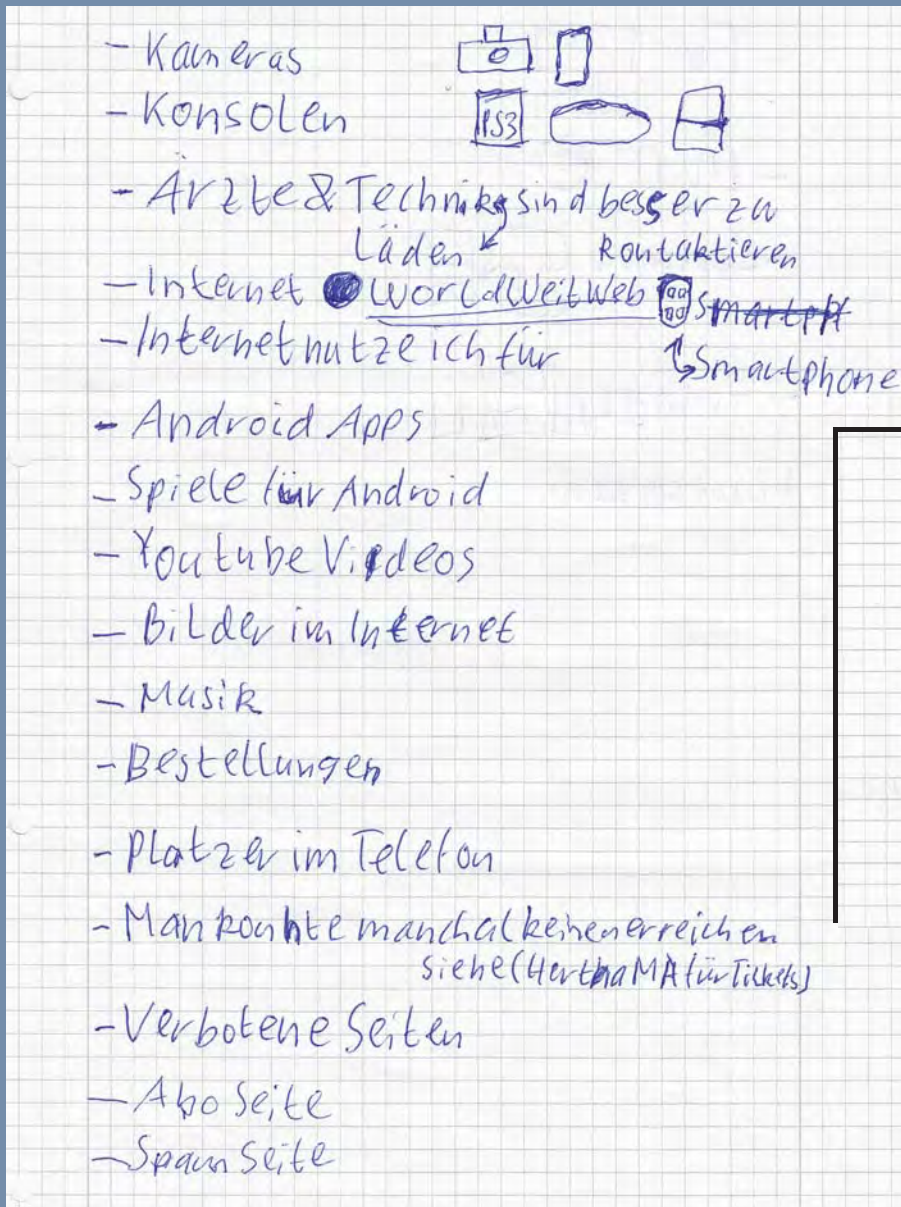 - Kameras
- Konsolen PS3
- Ärzte & Technik sind besser zu
Läden kontaktieren
- Internet WorldWeitWeb Smartph
- Internet nutze ich für Smartphone
- Android Apps
- Spiele für Android
- Youtube Videos
- Bilder im Internet
- Musik
- Bestellungen
- Platzer im Telefon
- Man konnte manchal keinen erreichen
siehe (Hertha MA für Tickets)
- Verbotene Seiten
- Abo Seite
- Spam Seite